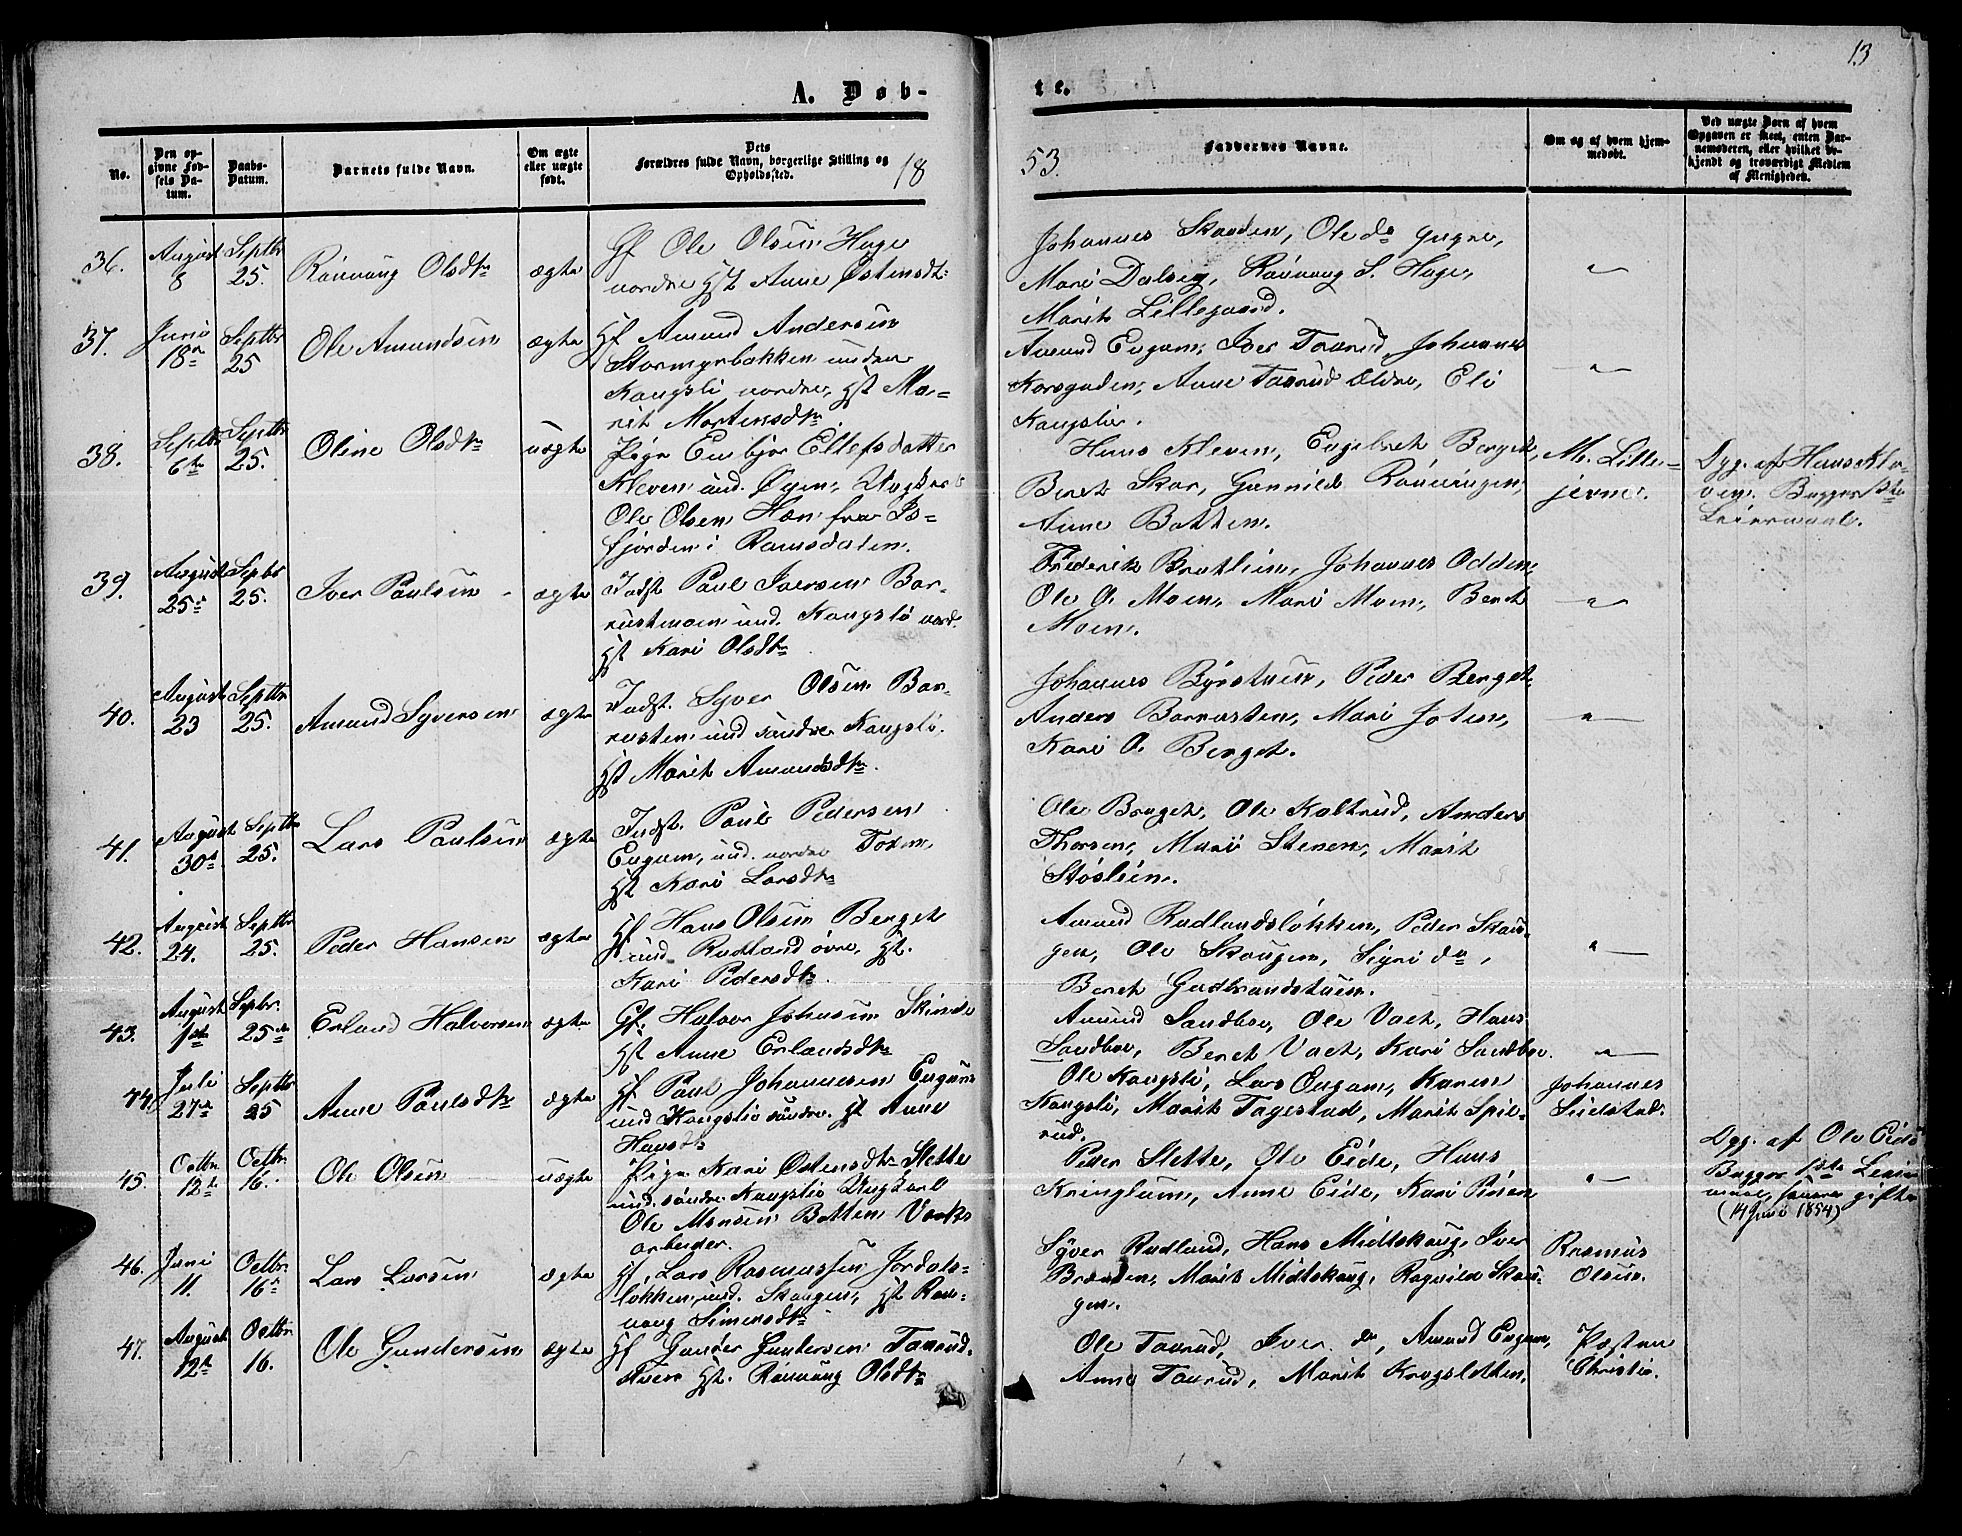 13
A. Døb-
te.
No.
Den op-
givne Fød-
sels Da-
tum.
Daabs-
Datum.
Barnets fulde Navn.
Om ægte
eller uægte
født.
Dets
Forældres fulde Navn, borgerlige Stilling og
Opholdssted.
18
53.
Faddernes Navne.
Om og af hvem hjem-
medøbt.
Ved uægte Børn af hvem
Opgaven er skeet, enten Bar-
nemoderen, eller hvilket be-
kjendt og troværdigt Medlem
af Menigheden.
36. August 8 Septbr 25. Rønnaug Olsdtr ægte
Gf Ole Olsen Hage
nordre Hst Anne Østensdtr
Johannes Skarden, Ole do
Mari Dalseg, Rønnaug S. Hage,
Marit Lillegaard.
37. Juni 18de Septbr 25 Ole Amundsen ægte
Hf Amund Andersen
Stormyrbakken under
Kongsli nordre, Hst Ma-
rit Mortensdtr
Amund Engum, Iver Taarud, Johannes
Korsgaden, Anne Taarud ældre, Eli
Kongslie.
38. Septbr 6te Septbr 25. Oline Olsdtr uægte
Pige Enbjør Ellefsdatter
Kleven und. Øyen, Ungkarl
Ole Olsen Hæn fra Is-
fjorden i Romsdalen.
Hans Kleven, Engebret Berget,
Beret Skar, Gunnild
Anne Botten.
M. Lille-
jevne.
Opg. af Hans Kle-
ven. Begges 1ste
Leiermaal.
39. August 25de Septbr 25. Iver Paulsen ægte
Indst Paul Iversen Bar-
rusten und. Kongsli nord.
Hst Kari Olsdtr
Frederik Bratlien, Johannes Odden,
Ole O. Moen, Mari Moen, Beret
Moen.
40. August 23 Septbr 25. Amund Syversen ægte
Indst. Syver Olsen Bar-
rusten und søndre Kongsli.
Hst Marit Amundsdtr.
Johannes Bystuen, Peder Berget,
Anders Barrusten, Mari Joten,
Kari O. Berget.
41. August 30te Septbr 25. Lars Paulsen ægte
Indst. Paul Pedersen
Engum, und. nordre Toten,
Hst Kari Larsdtr
Ole Berget, Ole Kaltrud, Anders
Thorsen, Mari Stenen, Marit
Støslien.
42. August 24. Septbr 25. Peder Hansen ægte
Hf Hans Olsen Berget
und. Rudland øvre, Hst.
Kari Pedersdtr.
Amund Rudlandsløkken, Peder Skau-
gen, Ole Skougen, Sigri do,
Beret Gudbrandstuen.
43. August 1ste Septbr. 25de Erland Halvorsen ægte
Gf. Halvor Johnsen Skinde
Hst Anne Erlandsdtr
Amund Sandboe, Ole Vaet, Hans
Sandboe, Beret Vaet, Kari Sandboe.
44. Juli 27de Septbr 25 Anne Paulsdtr ægte
Hf Paul Johannesen Engum
und Kongslie søndre. Hst Anne
Hansdtr
Ole Kongsli, Lars Engum, Karen
Kongsli, Marit Tagestad, Marit Spil-
rud.
Johannes
Sælstad.
45. Octbr. 12te Octbr. 16. Ole Olsen uægte
Pige Kari Østensdtr Slette
und. søndre Kongslie Ungkarl
Ole Monsen Botten Værks
arbeider.
Peder Slette, Ole Eide, Hans
Kringlum, Anne Eide, Kari
Opg. af Ole Eide
Begges 1ste Leier-
maal, senere gifte
(14 Juni 1854)
46. Juni 11. Octbr. 16de Lars Larsen ægte
Hf. Lars Rasmussen Jordals-
løkken, und. Skougen, Hst Røn-
naug Simensdtr
Syver Rudland, Hans Midtskaug, Iver
Brænden, Marit Midtskaug, Ragnild Skau-
gen.
Rasmus
Olsen.
47. August 12te Octbr. 16. Ole Gundersen ægte
Hf Gunder Gundersen Taarud,
Hst. Rønnaug Olsdtr
Ole Taarud, Iver do, Amund Engum,
Anne Taarud, Marit Krogsletten.
Pastor
Christie.